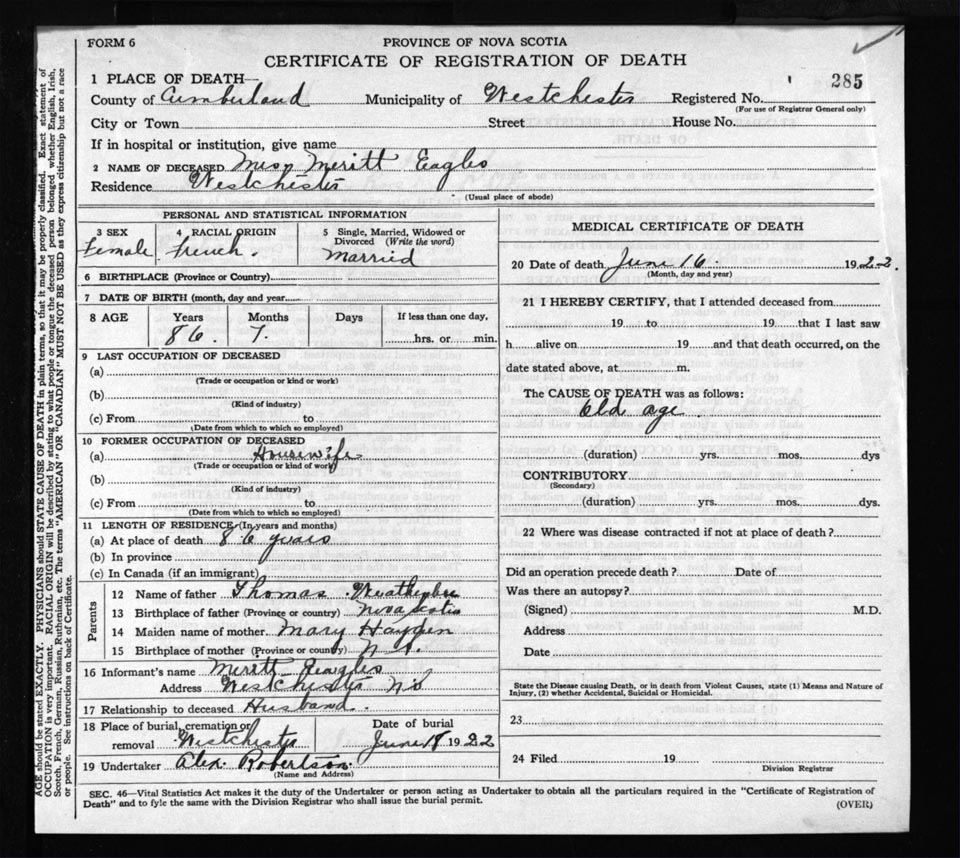 FORM 6
PROVINCE OF NOVA SCOTIA
CERTIFICATE OF REGISTRATION OF DEATH
285
1 PLACE OF DEATH—
County of Cumberland Municipality of Westchester Registered No.
(For use of Registrar General only)
City or Town Street House No.
If in hospital or institution, give name
2 NAME OF DECEASED Meritt Eagles
Residence Westchester
(Usual place of abode)
PERSONAL AND STATISTICAL INFORMATION
3 SEX 4 RACIAL ORIGIN 5 Single, Married, Widowed or Divorced (Write the word)
Female French. Married
6 BIRTHPLACE (Province or Country)
7 DATE OF BIRTH (month, day and year)
8 AGE Years Months Days If less than one day,
86. 7. hrs. or min.
9 LAST OCCUPATION OF DECEASED
(a)
(Trade or occupation or kind or work)
(b)
(Kind of industry)
(c) From to
(Date from which to which so employed)
10 FORMER OCCUPATION OF DECEASED
(a) Housewife
(Trade or occupation or kind of work)
(b)
(Kind of industry)
(c) From to
(Date from which to which so employed)
11 LENGTH OF RESIDENCE (In years and months)
(a) At place of death 86 years
(b) In province
(c) In Canada (if an immigrant)
Parents
12 Name of father Thomas Weatherbee
13 Birthplace of father (Province or country) Nova Scotia
14 Maiden name of mother Mary Hayden
15 Birthplace of mother (Province or county) N.S.
16 Informant's name Merritt Eagles
Address Westchester N S
17 Relationship to deceased Husband.
18 Place of burial, cremation or Date of burial
removal Westchester June 18 1922
19 Undertaker Alex. Robertson.
(Name and Address)
MEDICAL CERTIFICATE OF DEATH
20 Date of death June 16 1922.
(Month, day and year)
21 I HEREBY CERTIFY, that I attended deceased from
19 to 19 that I last saw
h alive on 19 and that death occurred, on the
date stated above, at m.
The CAUSE OF DEATH was as follows:
Old age
(duration) yrs. mos. dys
CONTRIBUTORY
(Secondary)
(duration) yrs. mos. dys.
22 Where was disease contracted if not at place of death?
Did an operation precede death? Date of
Was there an autopsy?
(Signed) M.D.
Address
Date
State the Disease causing Death, or in death from Violent Causes, state (1) Means and Nature of
Injury, (2) whether Accidental, Suicidal or Homicidal.
23
24 Filed 19
Division Registrar
SEC. 46—Vital Statistics Act makes it the duty of the Undertaker or person acting as Undertaker to obtain all the particulars required in the "Certificate of Registration of
Death" and to fyle the same with the Division Registrar who shall issue the burial permit.
(OVER)
AGE should be stated EXACTLY. PHYSICIANS should STATE CAUSE OF DEATH in plain terms, so that it may be properly classified. Exact statement of
OCCUPATION is very important. RACIAL ORIGIN will be described by stating to what people or tongue the deceased person belonged whether English, Irish,
Scotch, French, German, Russian, Ruthenian, etc. The terms "AMERICAN" OR "CANADIAN" MUST NOT BE USED as they express citizenship but not a race
or people. See instructions on back of Certificate.